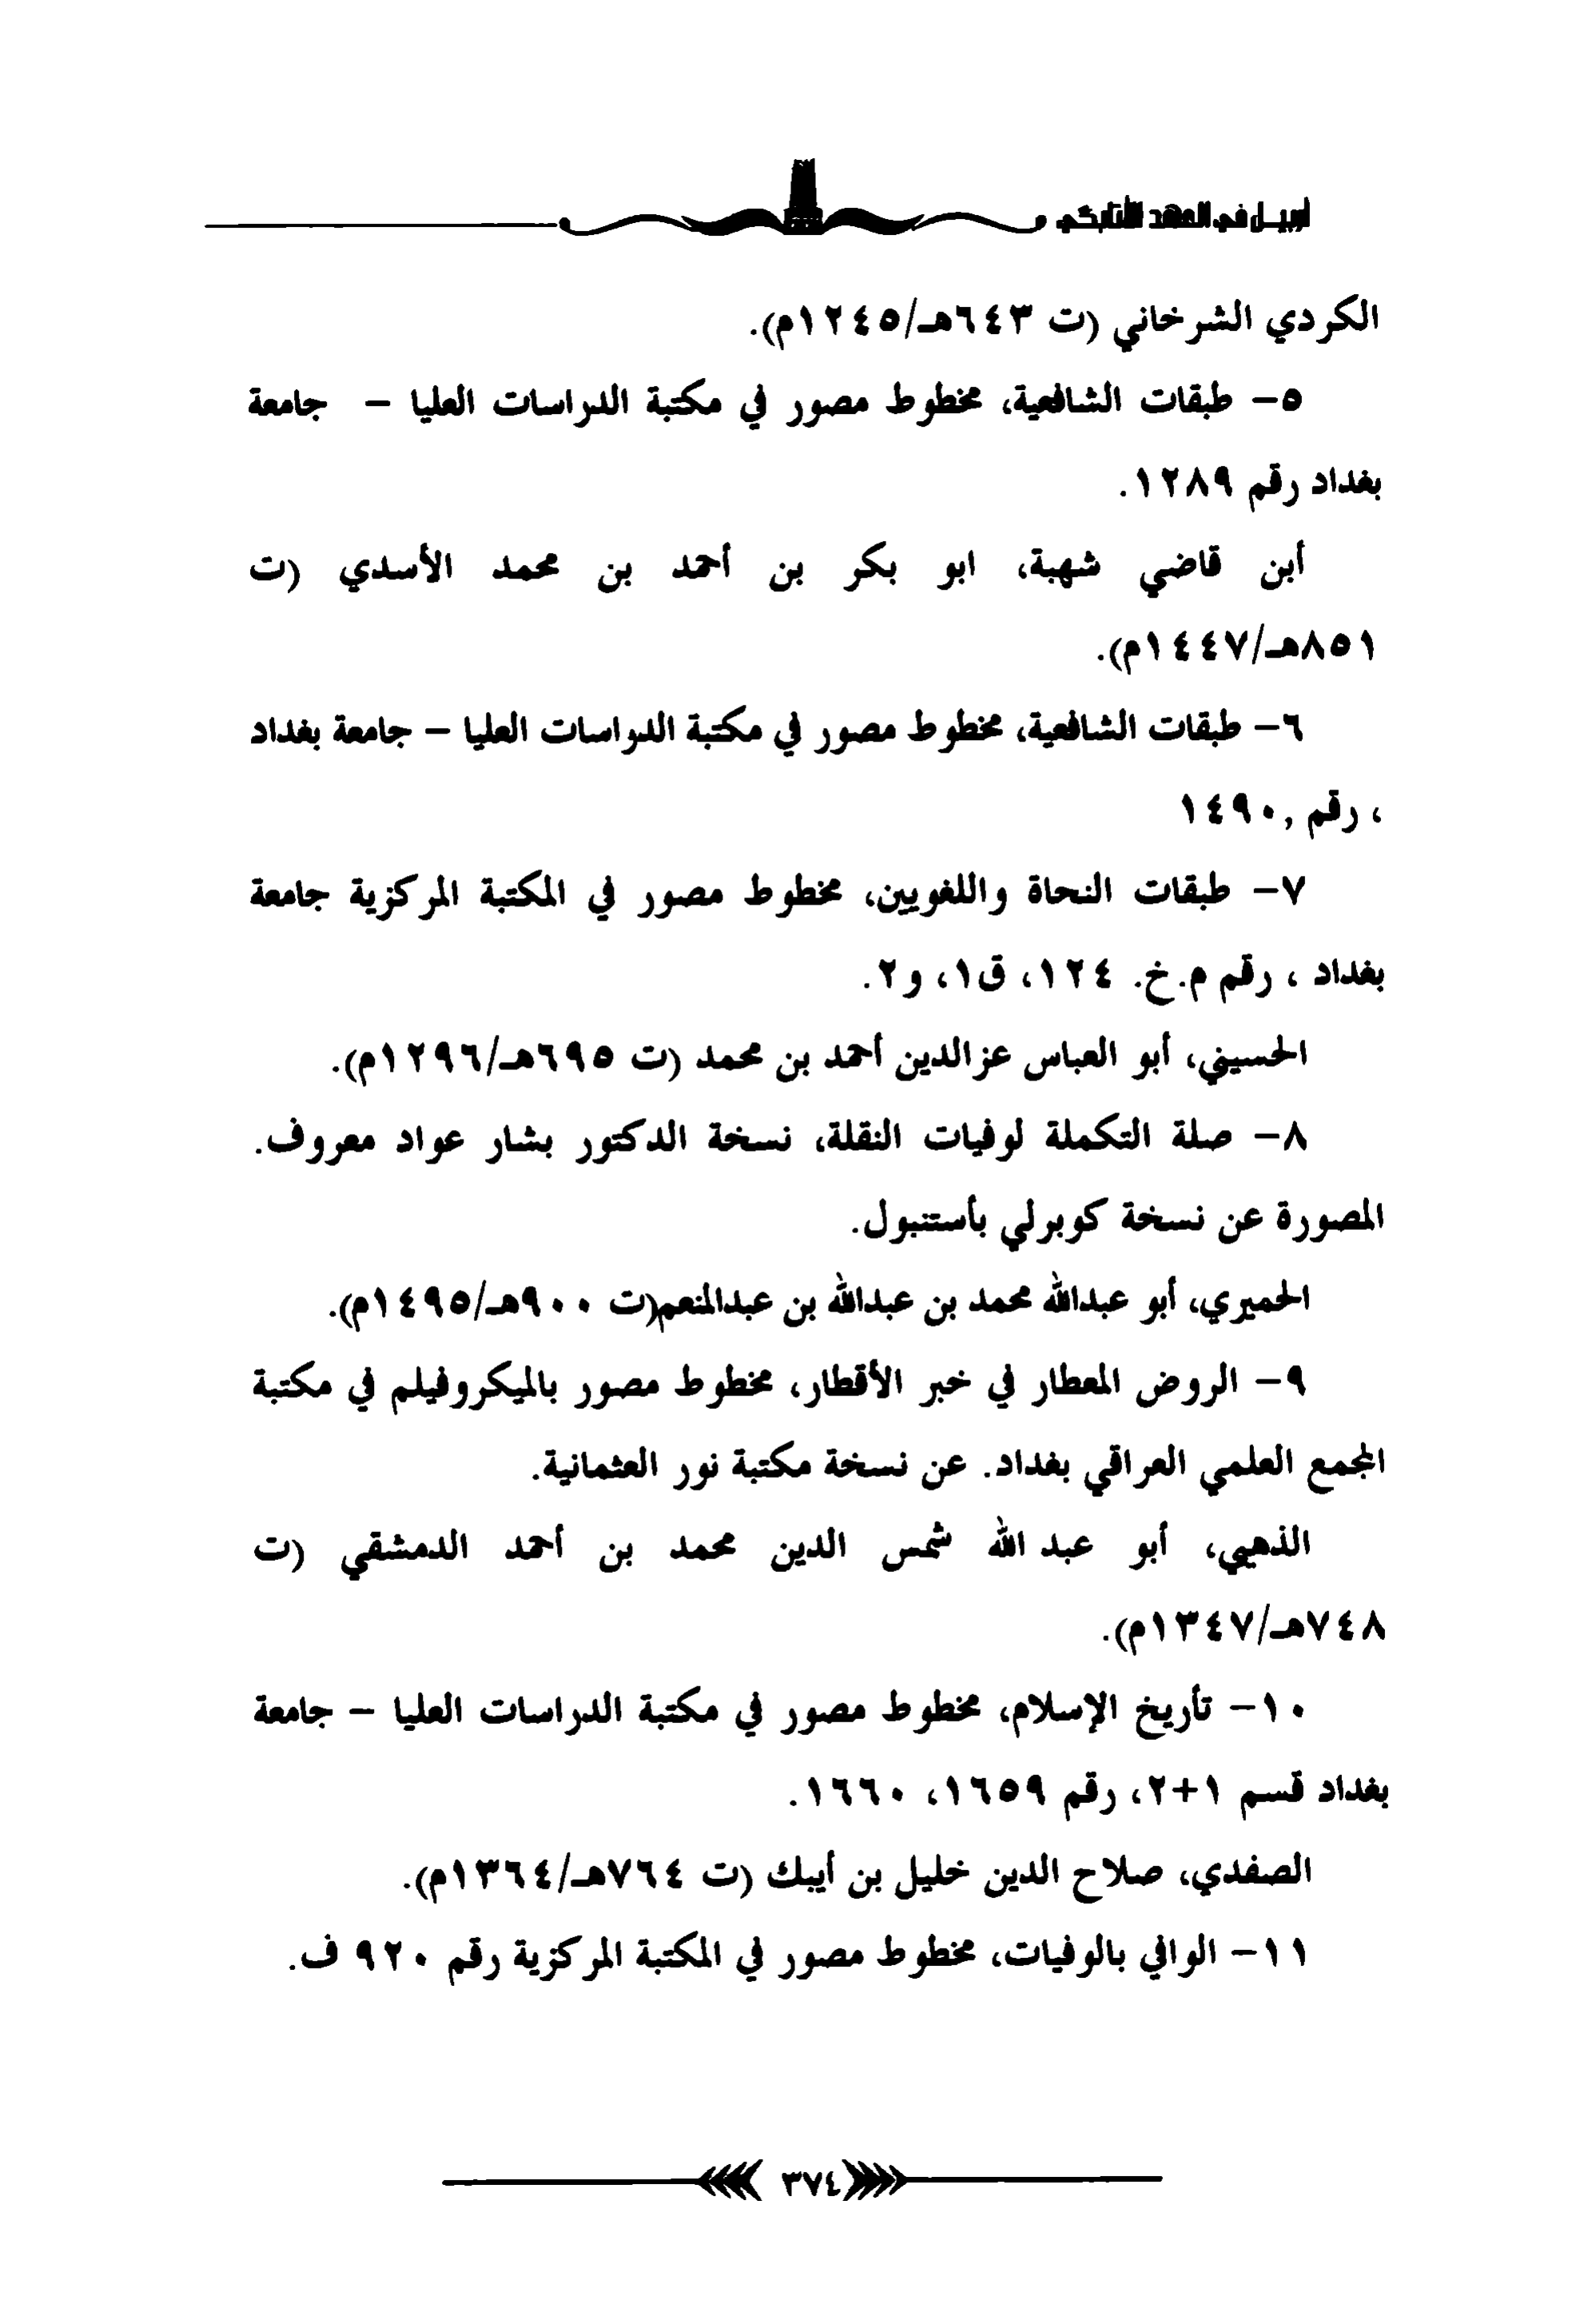 أربيـل في العهد الأتابكي
الكردي الشرخاني (ت ٦٤٣هـ/١٢٤٥م).
٥- طبقات الشافعية، مخطوط مصور في مكتبة الدراسات العليا - جامعة
بغداد رقم ١٢٨٩.
أبن قاضي شهبة، ابو بكر بن أحمد بن محمد الأسدي (ت
٨٥١هـ/١٤٤٧م).
٦- طبقات الشافعية، مخطوط مصور في مكتبة الدراسات العليا - جامعة بغداد
، رقم ,١٤٩٠
٧- طبقات النحاة واللغويين، مخطوط مصور في المكتبة المركزية جامعة
بغداد ، رقم م.خ. ١٢٤، ق١، و٢.
الحسيني، أبو العباس عزالدين أحمد بن محمد (ت ٦٩٥هـ/١٢٩٦م).
٨- صلة التكملة لوفيات النقلة، نسخة الدكتور بشار عواد معروف.
المصورة عن نسخة كوبرلي بأستنبول.
الحميري، أبو عبدالله محمد بن عبدالله بن عبدالمنعم(ت ٩٠٠هـ/١٤٩٥م).
٩- الروض المعطار في خبر الأقطار، مخطوط مصور بالميكروفيلم في مكتبة
المجمع العلمي العراقي بغداد. عن نسخة مكتبة نور العثمانية.
الذهبي، أبو عبد الله شمس الدين محمد بن أحمد الدمشقي (ت
٧٤٨هـ/١٣٤٧م).
١٠- تأريخ الإسلام، مخطوط مصور في مكتبة الدراسات العليا - جامعة
بغداد قسم ١+٢، رقم ١٦٥٩، ١٦٦٠.
الصفدي، صلاح الدين خليل بن أيبك (ت ٧٦٤هـ/١٣٦٤م).
١١- الوافي بالوفيات، مخطوط مصور في المكتبة المركزية رقم ٩٢٠ ف.
٣٧٤